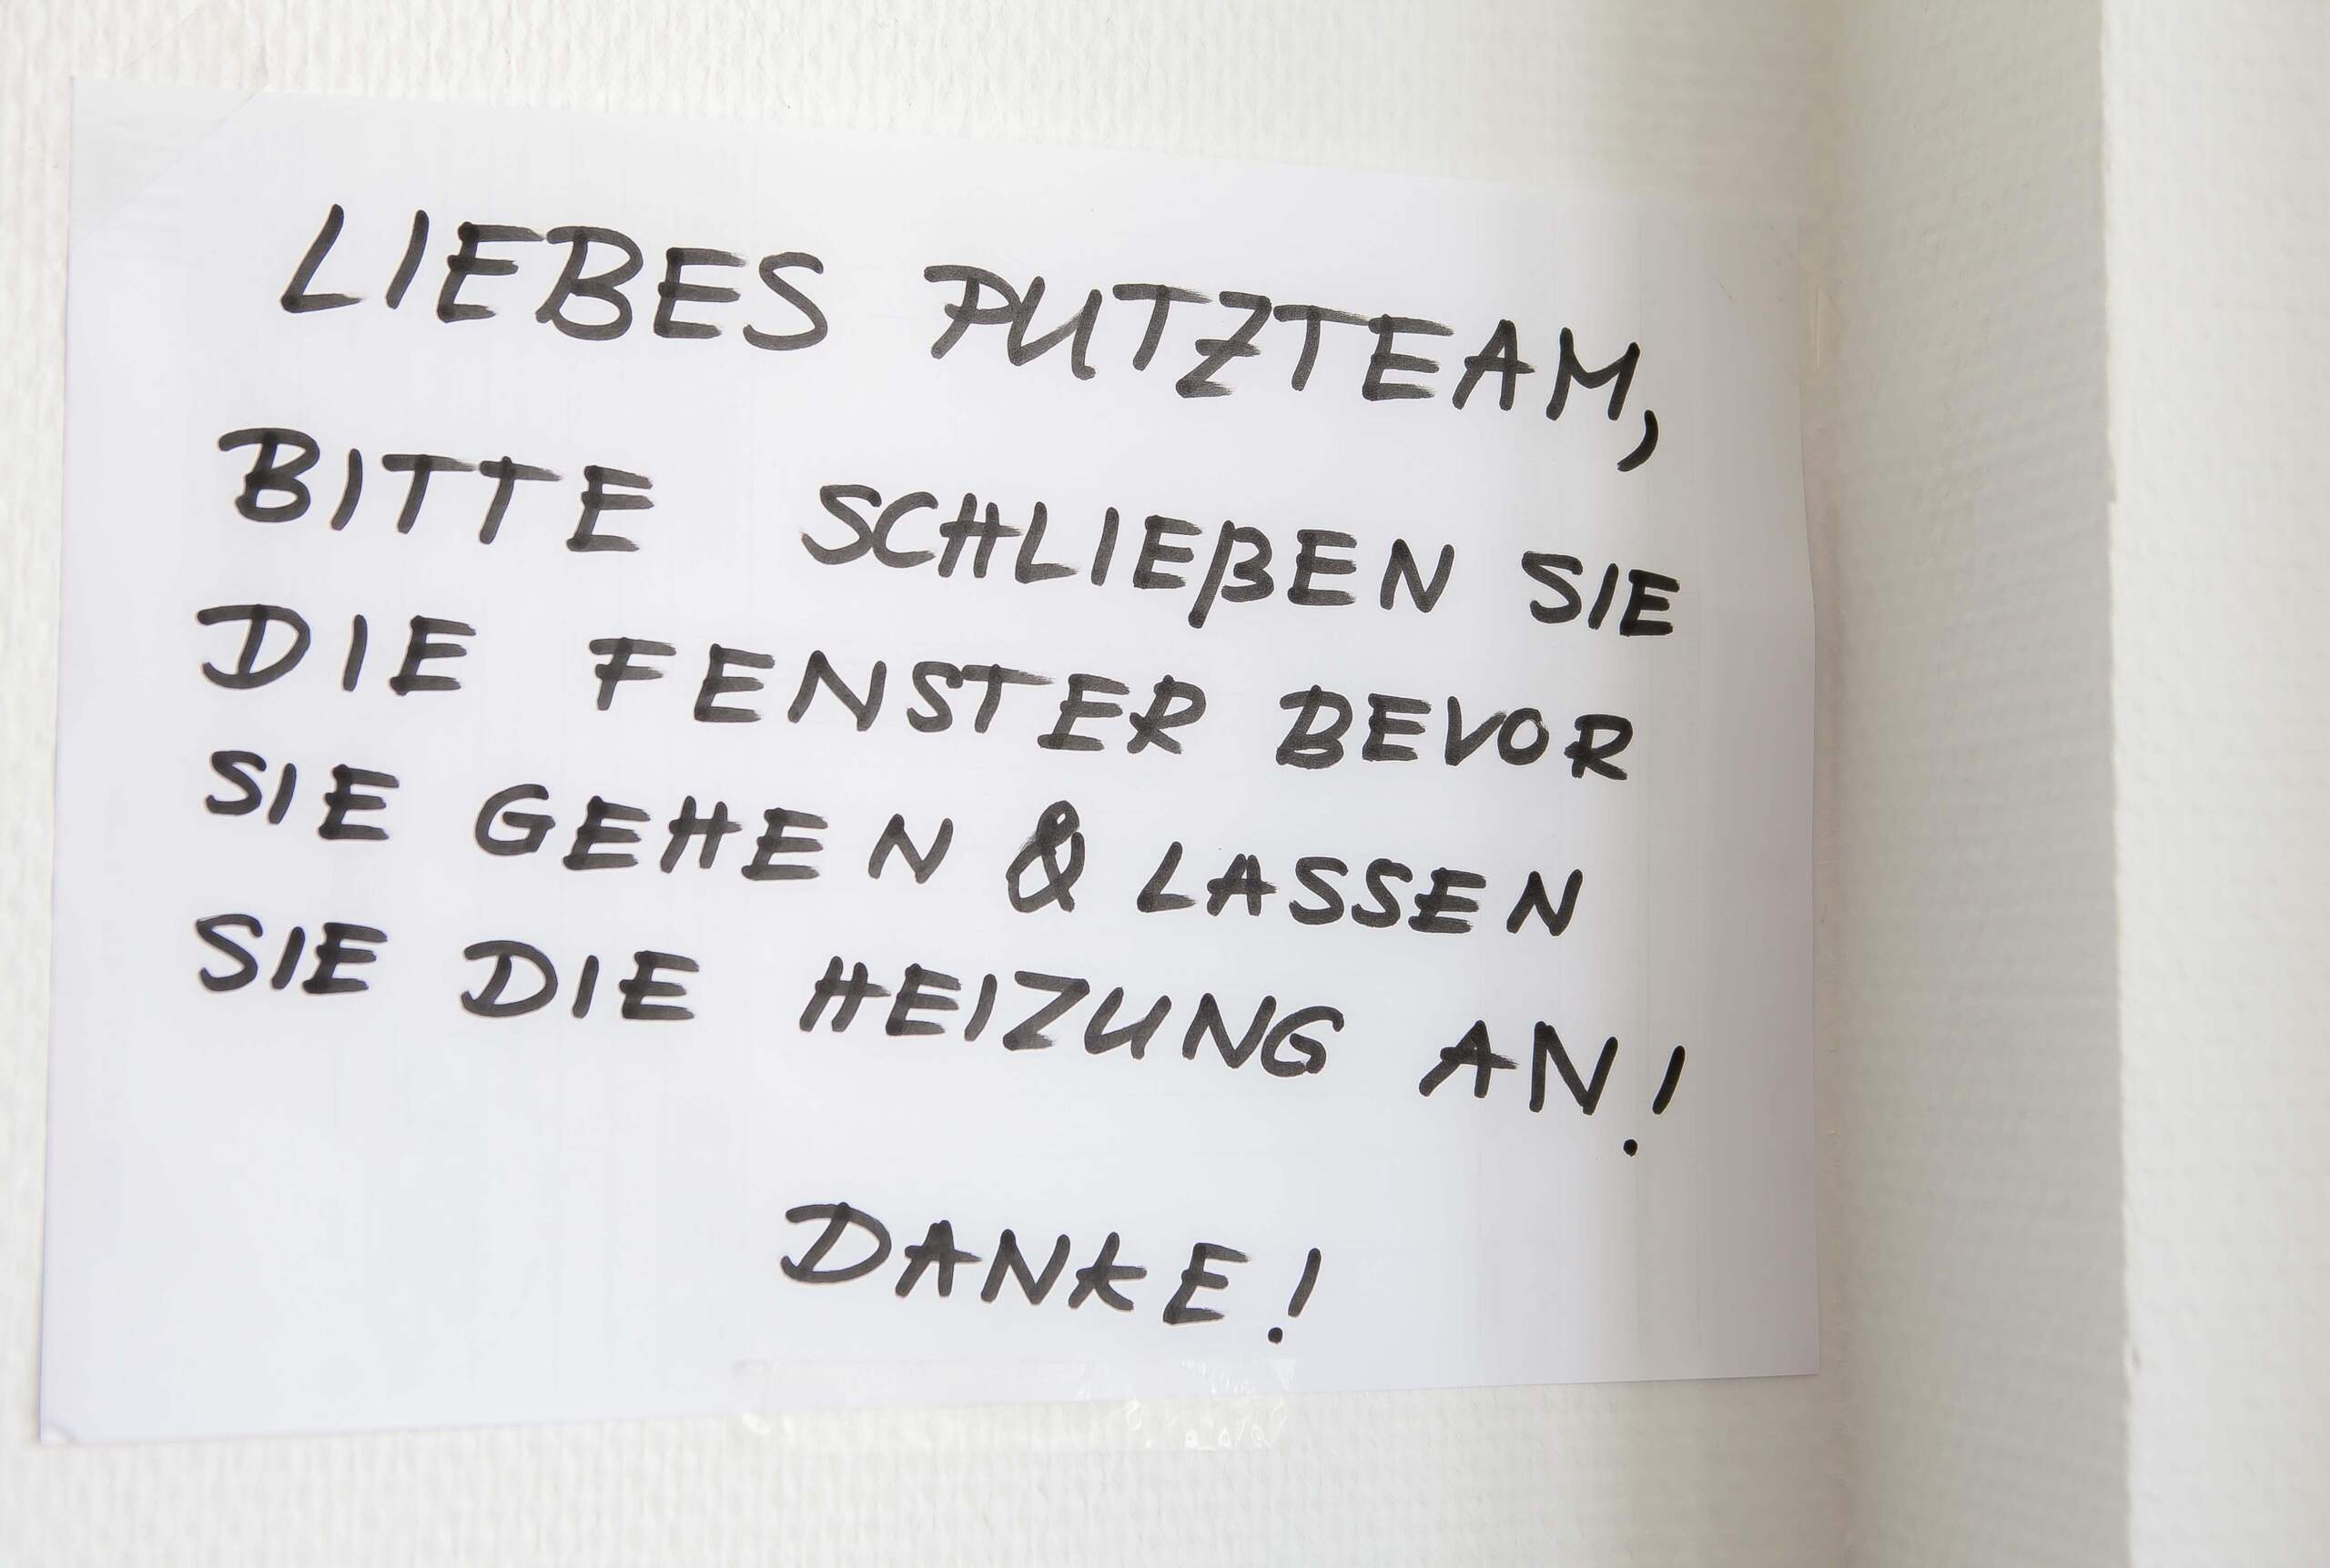 LIEBES PUTZTEAM,
BITTE SCHLIEßEN SIE
DIE FENSTER BEVOR
SIE GEHEN & LASSEN
SIE DIE HEIZUNG AN!
DANKE!